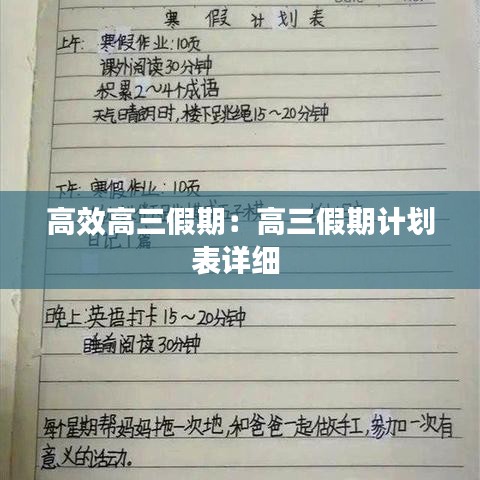 寒假计划表
上午:寒假作业:10页
课外阅读30分钟
积累2～4个成语
天气晴朗时,楼下跳绳15～20分钟
下午:寒假作业:10页
高效高三假期：高三假期计划
表详细
日记1篇
晚上:英语打卡15～20分钟
睡前阅读30分钟
每个星期帮妈妈拖一次地,和爸爸一起做手工,参加一次有
意义的活动。